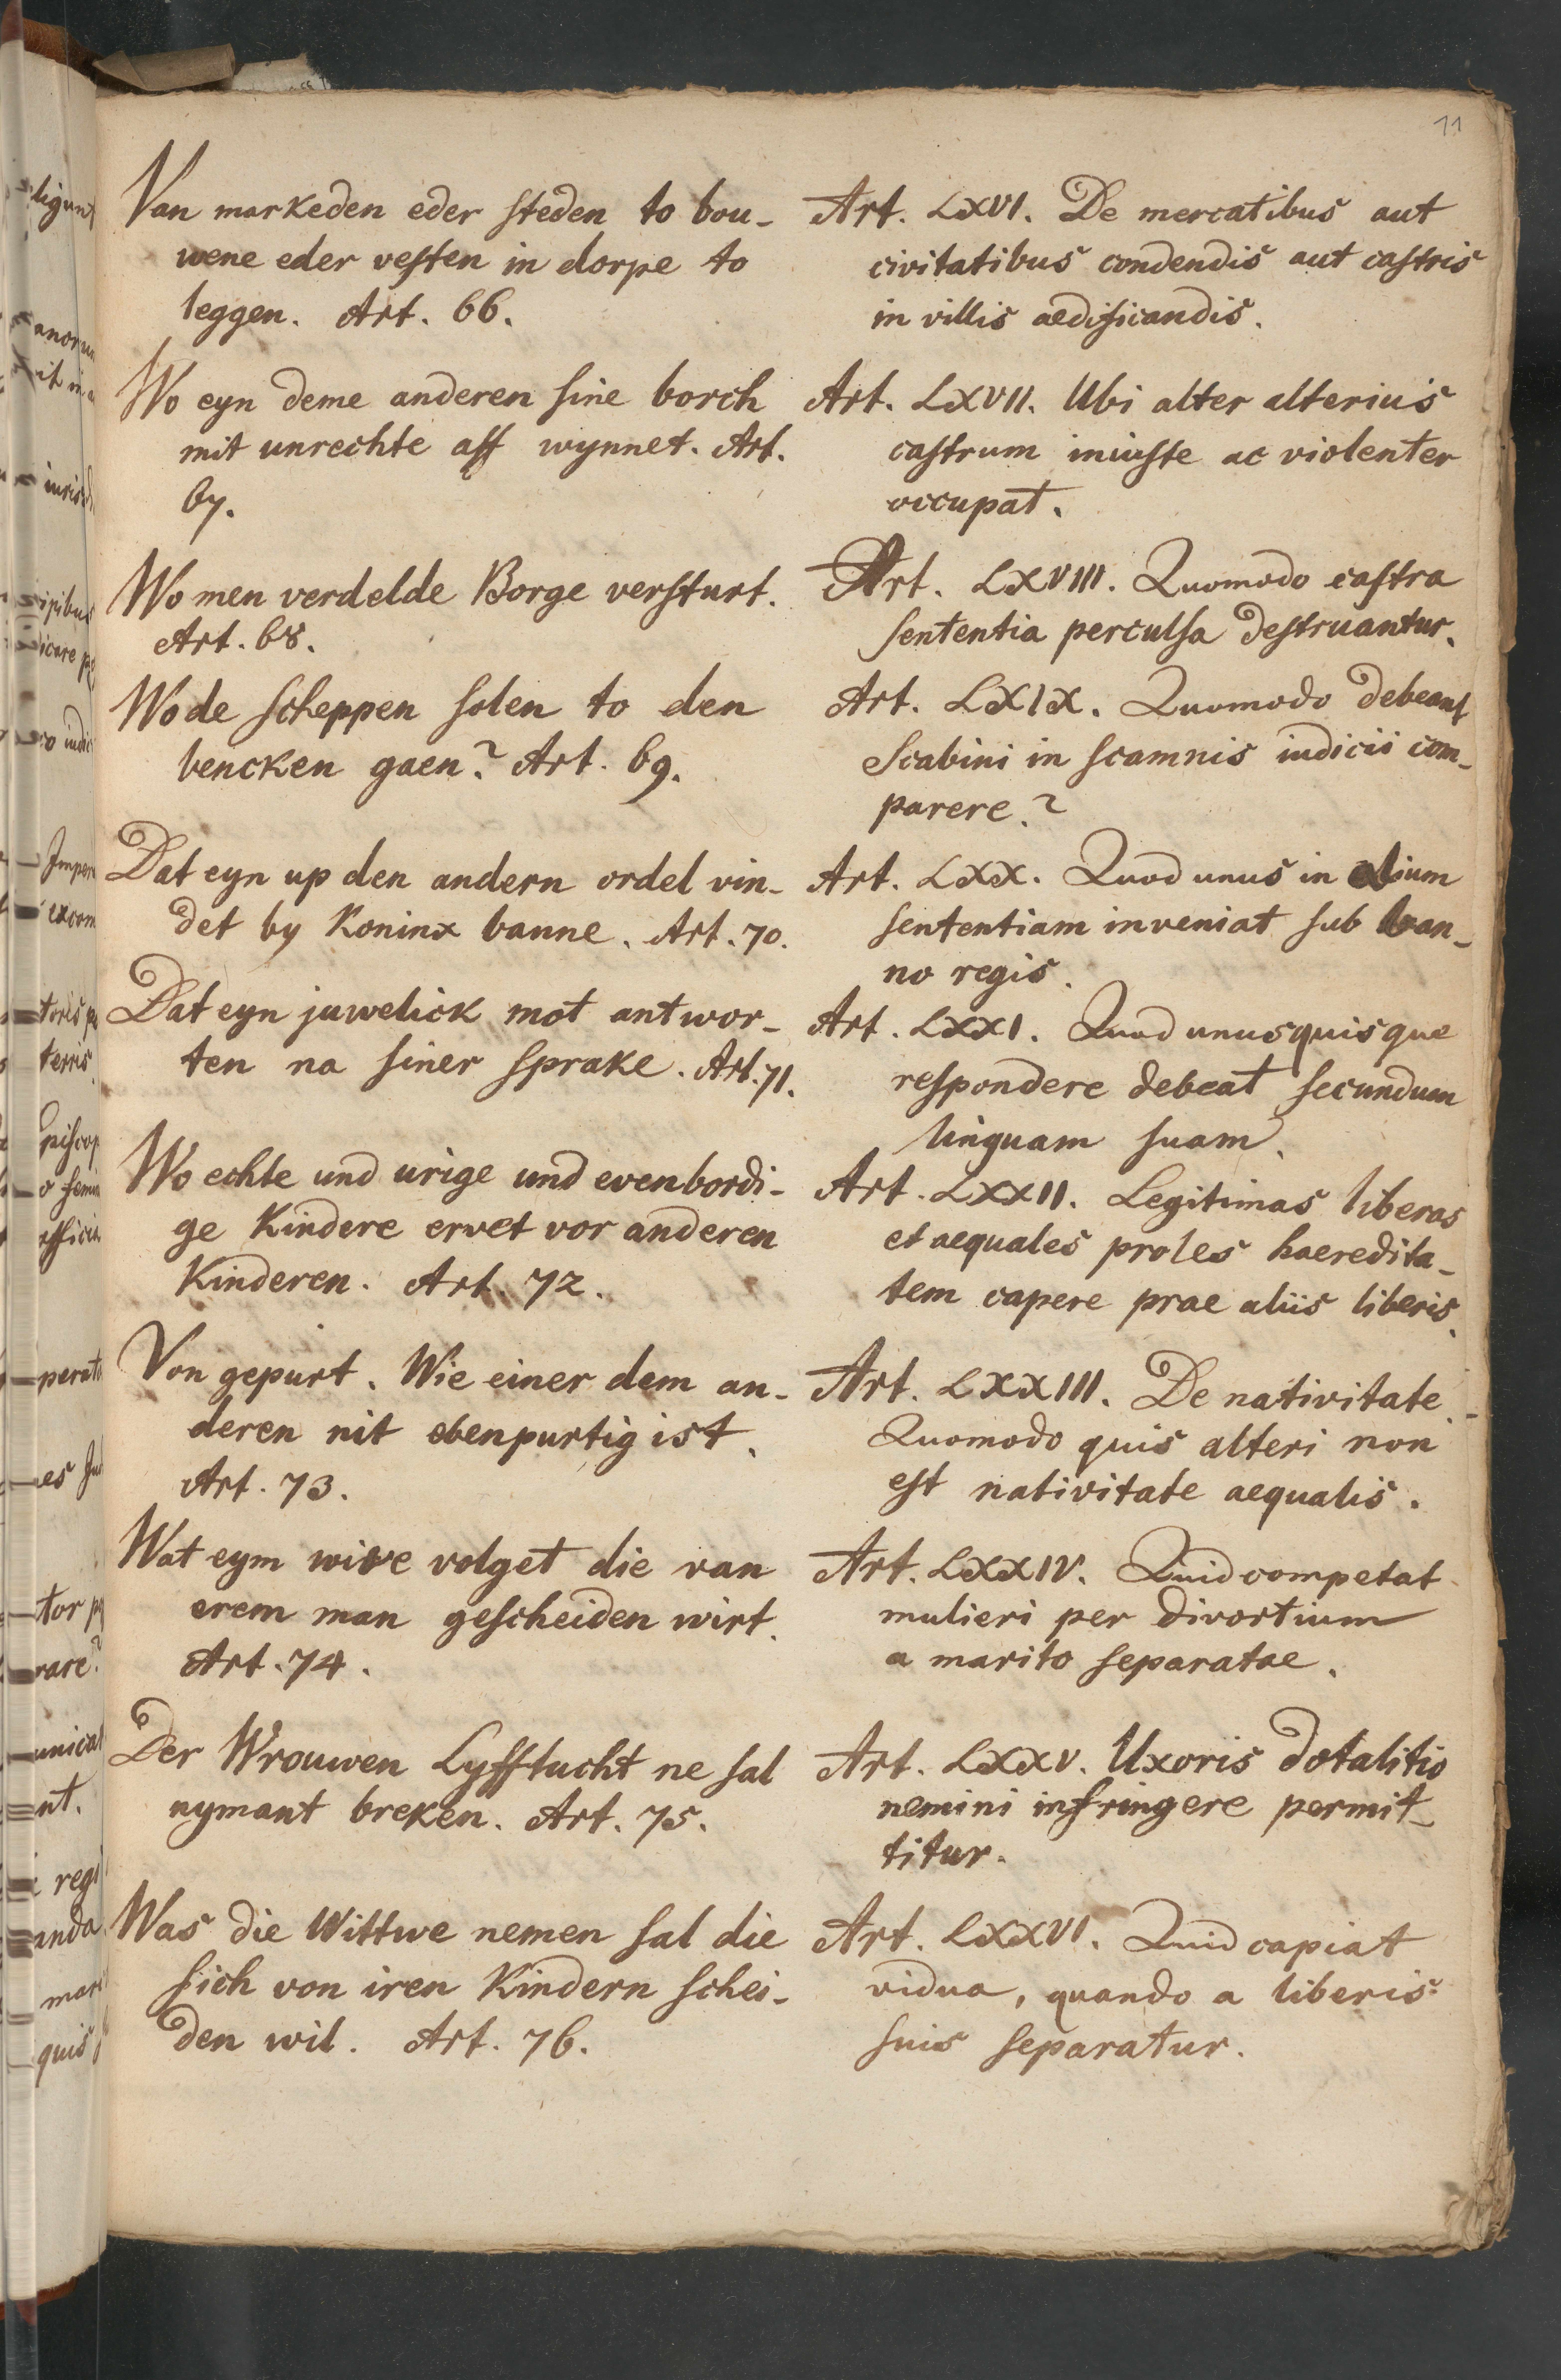 11
Van markeden eder steden to bou-
wene eder vesten in dorpe to
leggen. Art. 66.
Wo eyn deme anderen sine borch
mit unrechte aff wynnet. Art.
67.
Wo men verdelde Borge versturt.
Art. 68.
Wo de scheppen solen to den
bencken gaen? Art. 69.
Dat eyn up den andern ordel vin-
det by Koninx banne. Art. 70.
Dat eyn juwelick mot antwor-
ten na siner sprake. Art. 71.
Wo echte und vrige und evenbordi-
ge Kindere ervet vor anderen
Kinderen. Art. 72.
Von gepurt. Wie einer dem an-
deren nit ebenpurtig ist.
Art. 73.
Wat eym wive volget die van
erem man gescheiden wirt.
Art. 74.
Der Wrouwen Lyfftucht ne sal
nymant breken. Art. 75.
Was die Wittwe nemen sal die
sich von iren Kindern schei-
den wil. Art. 76.
Art. LXVI. De mercatibus aut
civitatibus condendis aut castris
in villis aedificandis.
Art. LXVII. Ubi alter alterius
castrum iniuste ac violenter
occupat.
Art. LXVIII. Quomodo castra
sententia perculsa destruantur.
Art. LXIX. Quomodo debeant
Scabini in scamnis iudicii com-
parere?
Art. LXX. Quod unus in alium
sententiam inveniat sub ban-
no regis.
Art. LXXI. Quod unusquisque
respondere debeat secundum
linguam suam.
Art. LXXII. Legitimas liberas
et aequales proles haeredita-
tem capere prae aliis liberis.
Art. LXXIII. De nativitate.-
Quomodo quis alteri non
est nativitate aequalis.
Art. LXXIV. Quid competat
mulieri per divortium
a marito separatae.
Art. LXXV. Uxoris dotalitio
nemini infringere permit-
titur.
Art. LXXVI. Quid capiat
vidua, quando a liberis
suis separatur.